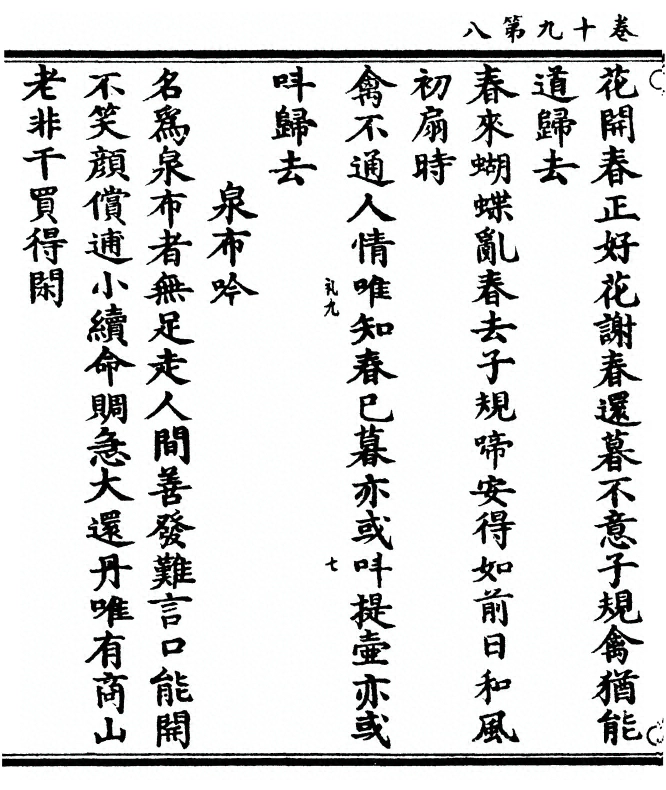 卷十九第八
花開春正好花謝春還暮不意子規禽猶能
道歸去
春來蝴蝶亂春去子規啼安得如前日和風
初扇時
禽不通人情唯知春已暮亦或呌提壷亦或
呌歸去
礼九
七
泉布吟
名爲泉布者無足走人間善發難言口能開
不笑顔償逋小續命賙急大還丹唯有商山
老非干買得閑